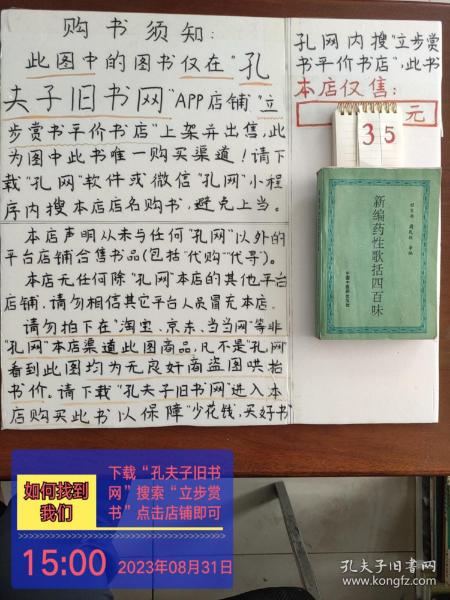 购书须知:
此图中的图书仅在“孔
夫子旧书网”APP店铺“立
步赏书平价书店”上架并出售,此
为图中此书唯一购买渠道!请下
载“孔网”软件或微信“孔网”小程
序内搜本店店名购书,避免上当。
本店声明从未与任何“孔网”以外的
平台店铺合售书品(包括“代购”“代寻”)。
本店无任何除“孔网”本店的其他平台
店铺,请勿相信其它平台人员冒充本店。
请勿拍下在“淘宝、京东、当当网”等非
“孔网”本店渠道此图商品,凡不是“孔网”
看到此图均为无良奸商盗图哄抬
书价。请下载“孔夫子旧书网”进入本
店购买此书以保障“少花钱,买好书”
孔网内搜“立步赏
书平价书店”,此书
本店仅售:
35
元
新编药性歌括四百味
中国中医药出版社
如何找到
我们
下载“孔夫子旧书
网”搜索“立步赏
书”点击店铺即可
15:00 2023年08月31日
孔夫子旧书网
www.kongfz.com